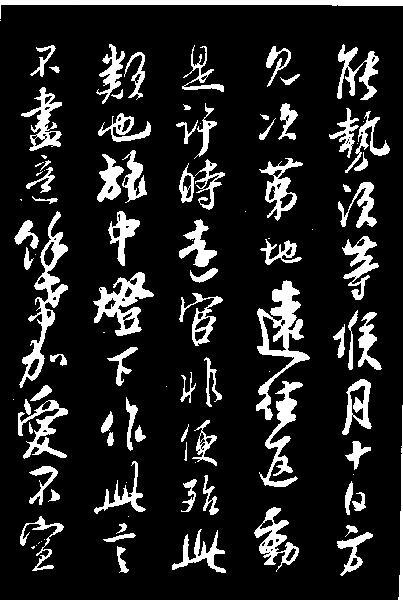 能勢須等候月十日方
見次第地遠往返動
是許時遠官非便殆此
類也旅中燈下作此言
不盡意餘希加愛不宣